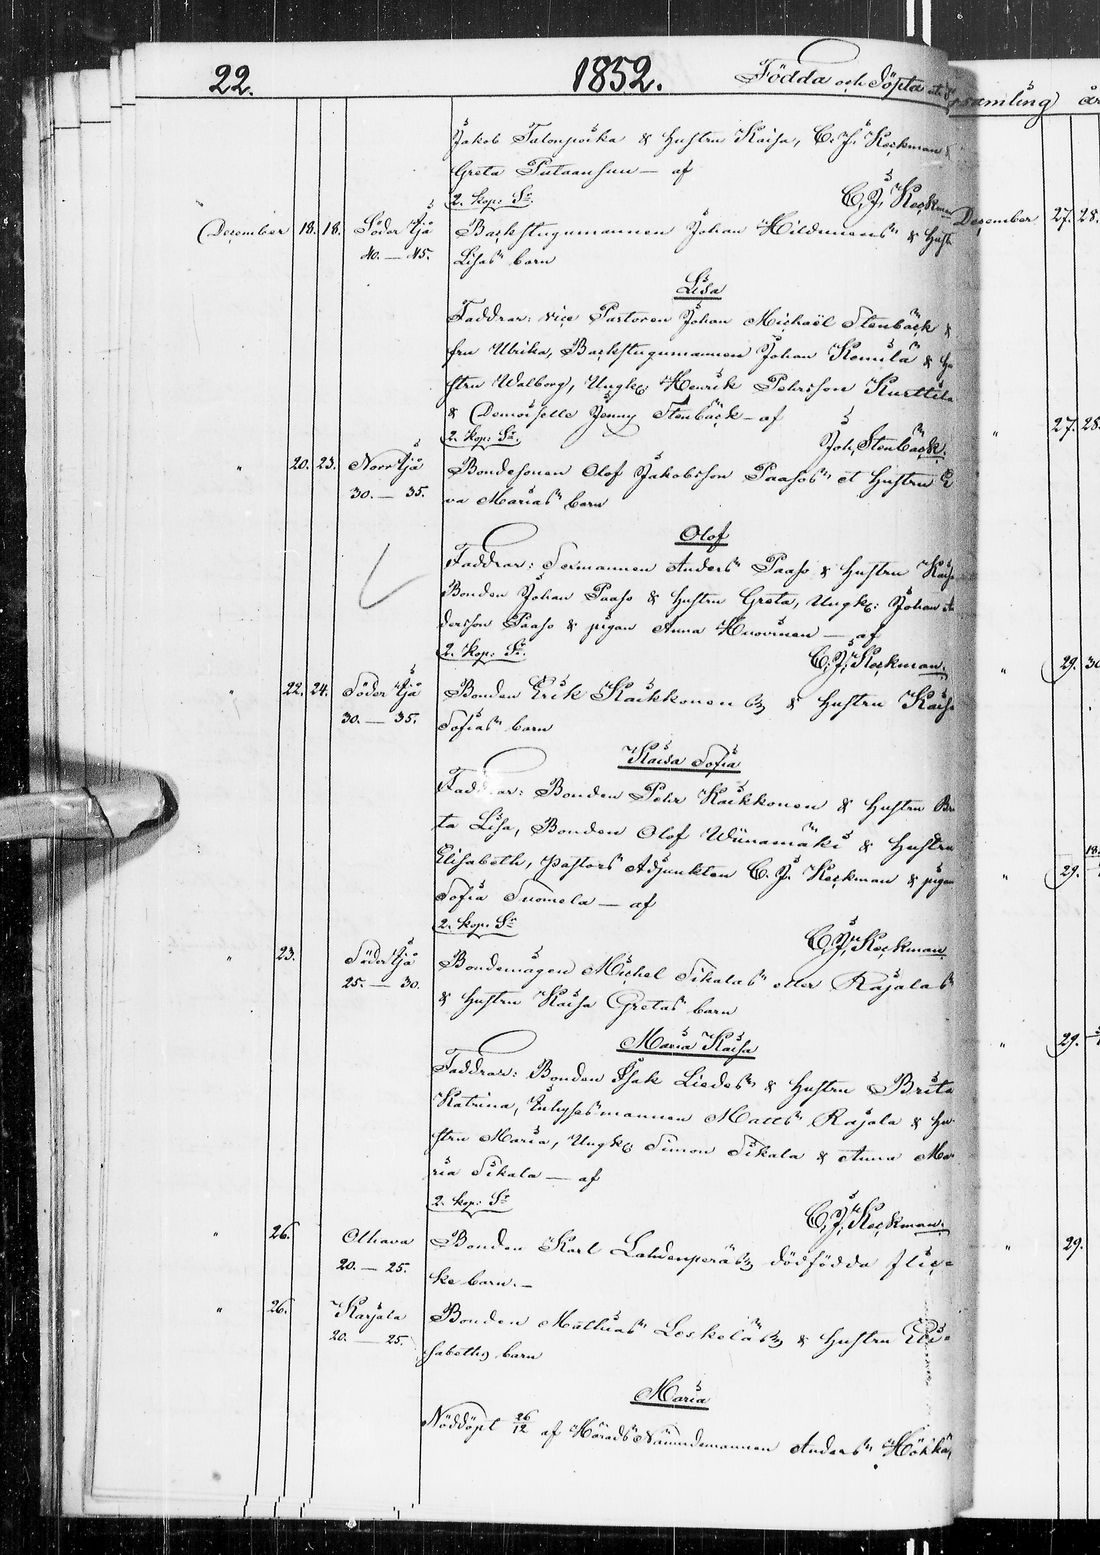 22. 1852. Födda och Döpta
Jakob Talonpoika & hustru Kaisa, C. J. Keckman &
Greta Putaansuu — af
2. kop: Sr. C. J. Keckman
December 18. 18. Söder Ijå Backstugumannen Johan Hildunens & hust
40. — 45. Lisas barn
Lisa
Faddrar: vice Pastoren Johan Michaël Stenbäck &
fru Ulrika, Backstugumannen Johan Komula & hu
stru Walborg, Ungk: Henrik Pehrsson Kurttila
& Demoiselle Jenny Stenbäck — af
2. kop: Sr. Joh. Stenbäck.
" 20. 23. Norr Ijå Bondesonen Olof Jakobsson Paasos et hustru E
30. — 35. va Marias barn
Olof
Faddrar: Anders Paaso & hustru Kaisa
Bonden Johan Paaso & hustru Greta, Ungk: Johan An
dersson Paaso & pigan Anna Huovinen — af
2. kop: Sr. C. J. Keckman.
" 22. 24. Söder Ijå Bonden Erik Kaikkonens & hustru Kaisa
30. — 35. Sofias barn
Kaisa Sofia
Faddrar: Bonden Pehr Kaikkonen & hustru Bri
ta Lisa, Bonden Olof Wiinamäki & hustru
Elisabeth, Pastors Adjunkten C. J. Keckman & pigan
Sofia Suomela — af
2. kop. Sr C. J. Keckman.
" 23. Söder Ijå Bondemågen Michel Sikalas eller Rajalas
25. — 30. & hustru Kaisa Gretas barn
Maria Kaisa
Faddrar: Bonden Isak Liedes & hustru Brita
Katrina, Inhysesmannen Matts Rajala & hu
stru Maria, Ungk: Simon Sikala & Anna Ma
ria Sikala — af
2. kop: Sr C. J. Keckman.
" 26. Olhava Bonden Karl Lahdenperäs dödfödda flic=
20. — 25. ke barn. —
" 26. Karjala Bonden Mathias Leskeläs & hustru Eli=
20. — 25. sabeths barn
Maria
Nöddöpt 26/12 af Härads Nämndemannen Anders Hökkä,
samling år
December 27. 28.
" 27. 28.
" 29. 30
" 29.
" 29.
" 29.